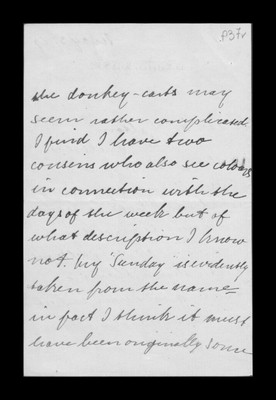 f37r
the donkey-carts may
seem rather complicated
I find I have two
cousins who also see colours
in connection with the
days of the week but of
what description I know
not. My "Sunday" is evidently
taken from the name –
in fact I think it must
have been originally some